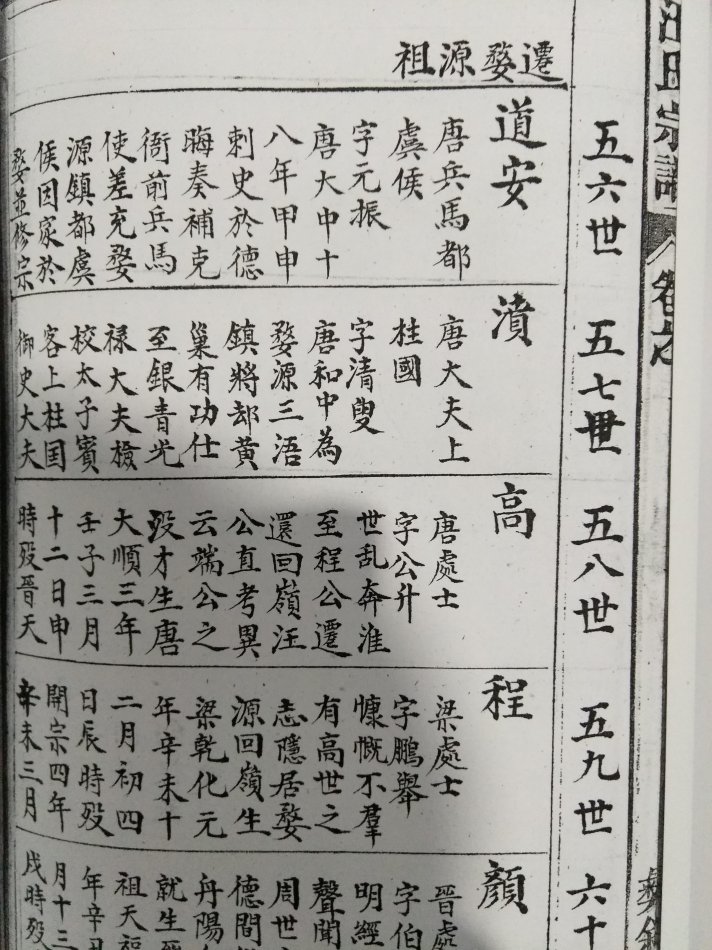 汪氏宗譜
卷之
五六世
五七世
五八世
五九世
六十
遷婺源祖
道安
唐兵馬都
虞候
字元振
唐大中十
八年甲申
刺史於德
晦奏補克
衙前兵馬
使差充婺
源鎮都虞
侯因家於
婺並修宗
濆
唐大夫上
柱國
字清叟
唐和中為
婺源三浯
鎮將却黄
巢有功仕
至銀青光
禄大夫檢
校太子賓
客上柱国
御史大夫
高
唐處士
字公升
世乱奔淮
至程公遷
還回嶺汪
公直考異
云端公之
殁才生唐
大順三年
壬子三月
十二日申
時殁晉天
程
梁處士
字鵬舉
慷慨不羣
有高世之
志隱居婺
源回嶺生
梁乾化元
年辛未十
二月初四
日辰時殁
開宗四年
辛未三月
顏
晉處
字伯
明經
聲聞
周世
德間
丹陽
就生
祖天福
年辛丑
月十三
戌時殁